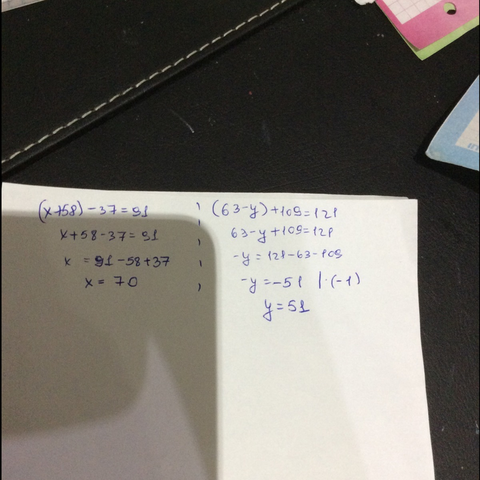 (x+58)-37=91
x+58-37=91
x = 91-58+37
x = 70
(63-y)+109=121
63-y+109=121
-y=121-63-109
-y=-51 |·(-1)
y=51